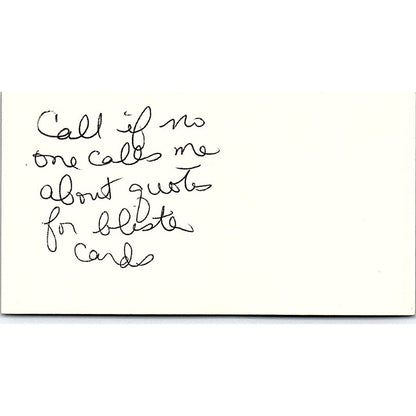 Call if no
one calls me
about quotes
for blister
cards